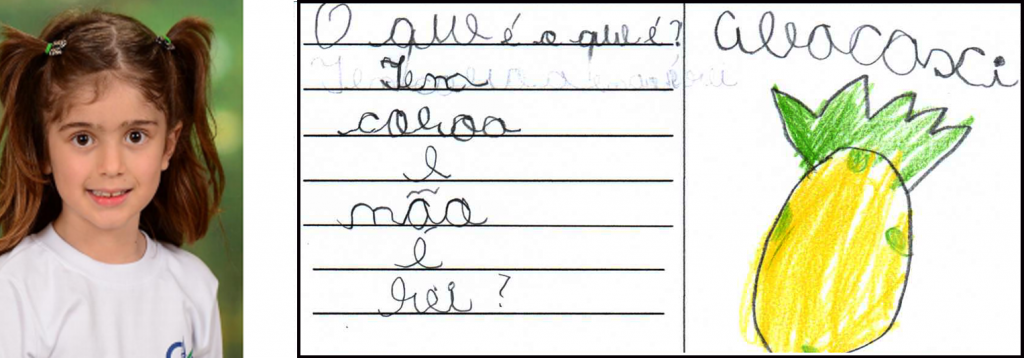 O que é o que é?
Tem
coroa
e
não
é
rei ?
abacaxi